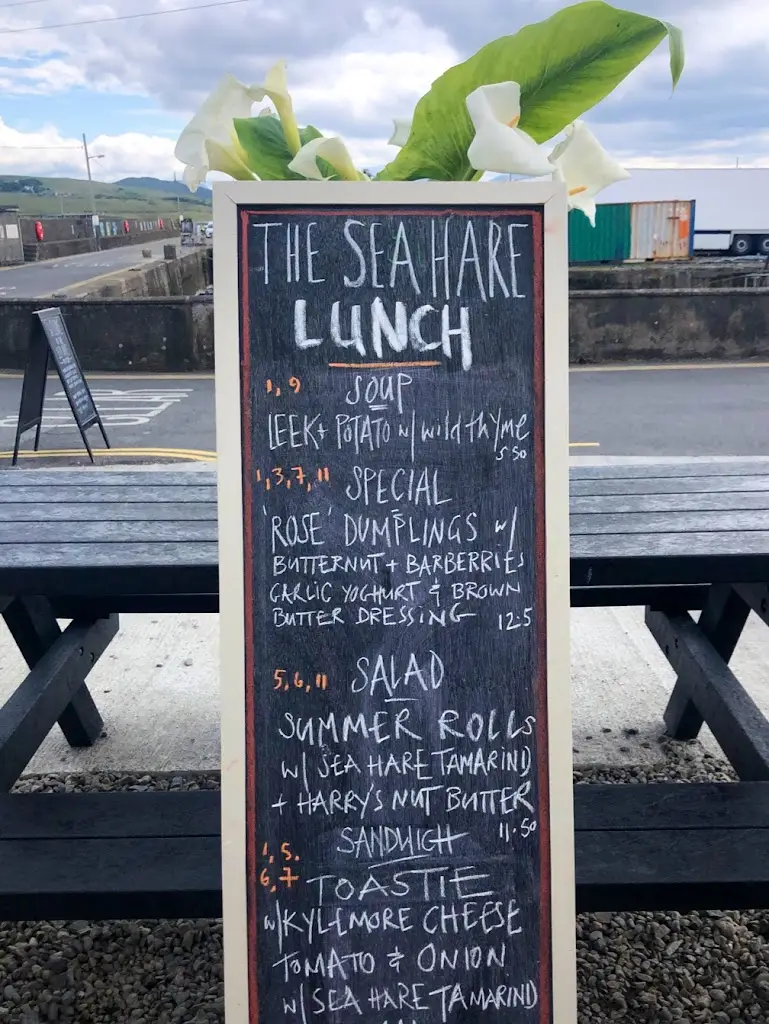 THE SEA HARE
LUNCH
1, 9
SOUP
LEEK + POTATO w/ wild thyme
5.50
1,3,7,11
SPECIAL
'ROSE' DUMPLINGS w/
BUTTERNUT + BARBERRIES
GARLIC YOGHURT & BROWN
BUTTER DRESSING 12.5
5,6,11
SALAD
SUMMER ROLLS
w/ SEA HARE TAMARIND
+ HARRY'S NUT BUTTER
11.50
SANDWICH
1, 5.
6,7
TOASTIE
w/ KYLEMORE CHEESE
TOMATO & ONION
w/ SEA HARE TAMARIND